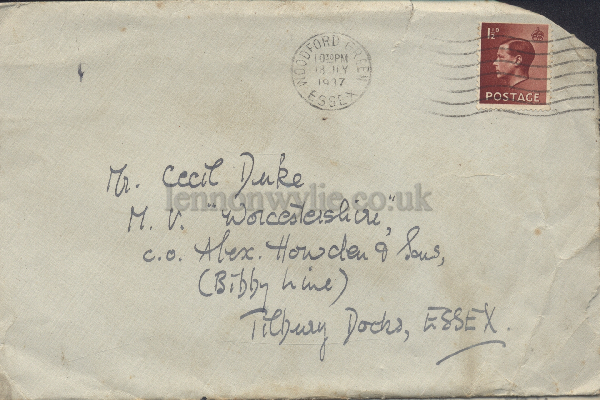 WOODFORD GREEN
1030PM
13 JLY
1937
ESSEX
1½D
POSTAGE
Mr. Cecil Duke
M.V. "Worcestershire",
c.o. Alex. Howden & Sons,
(Bibby Line)
Tilbury Docks, ESSEX.
lennonwylie.co.uk